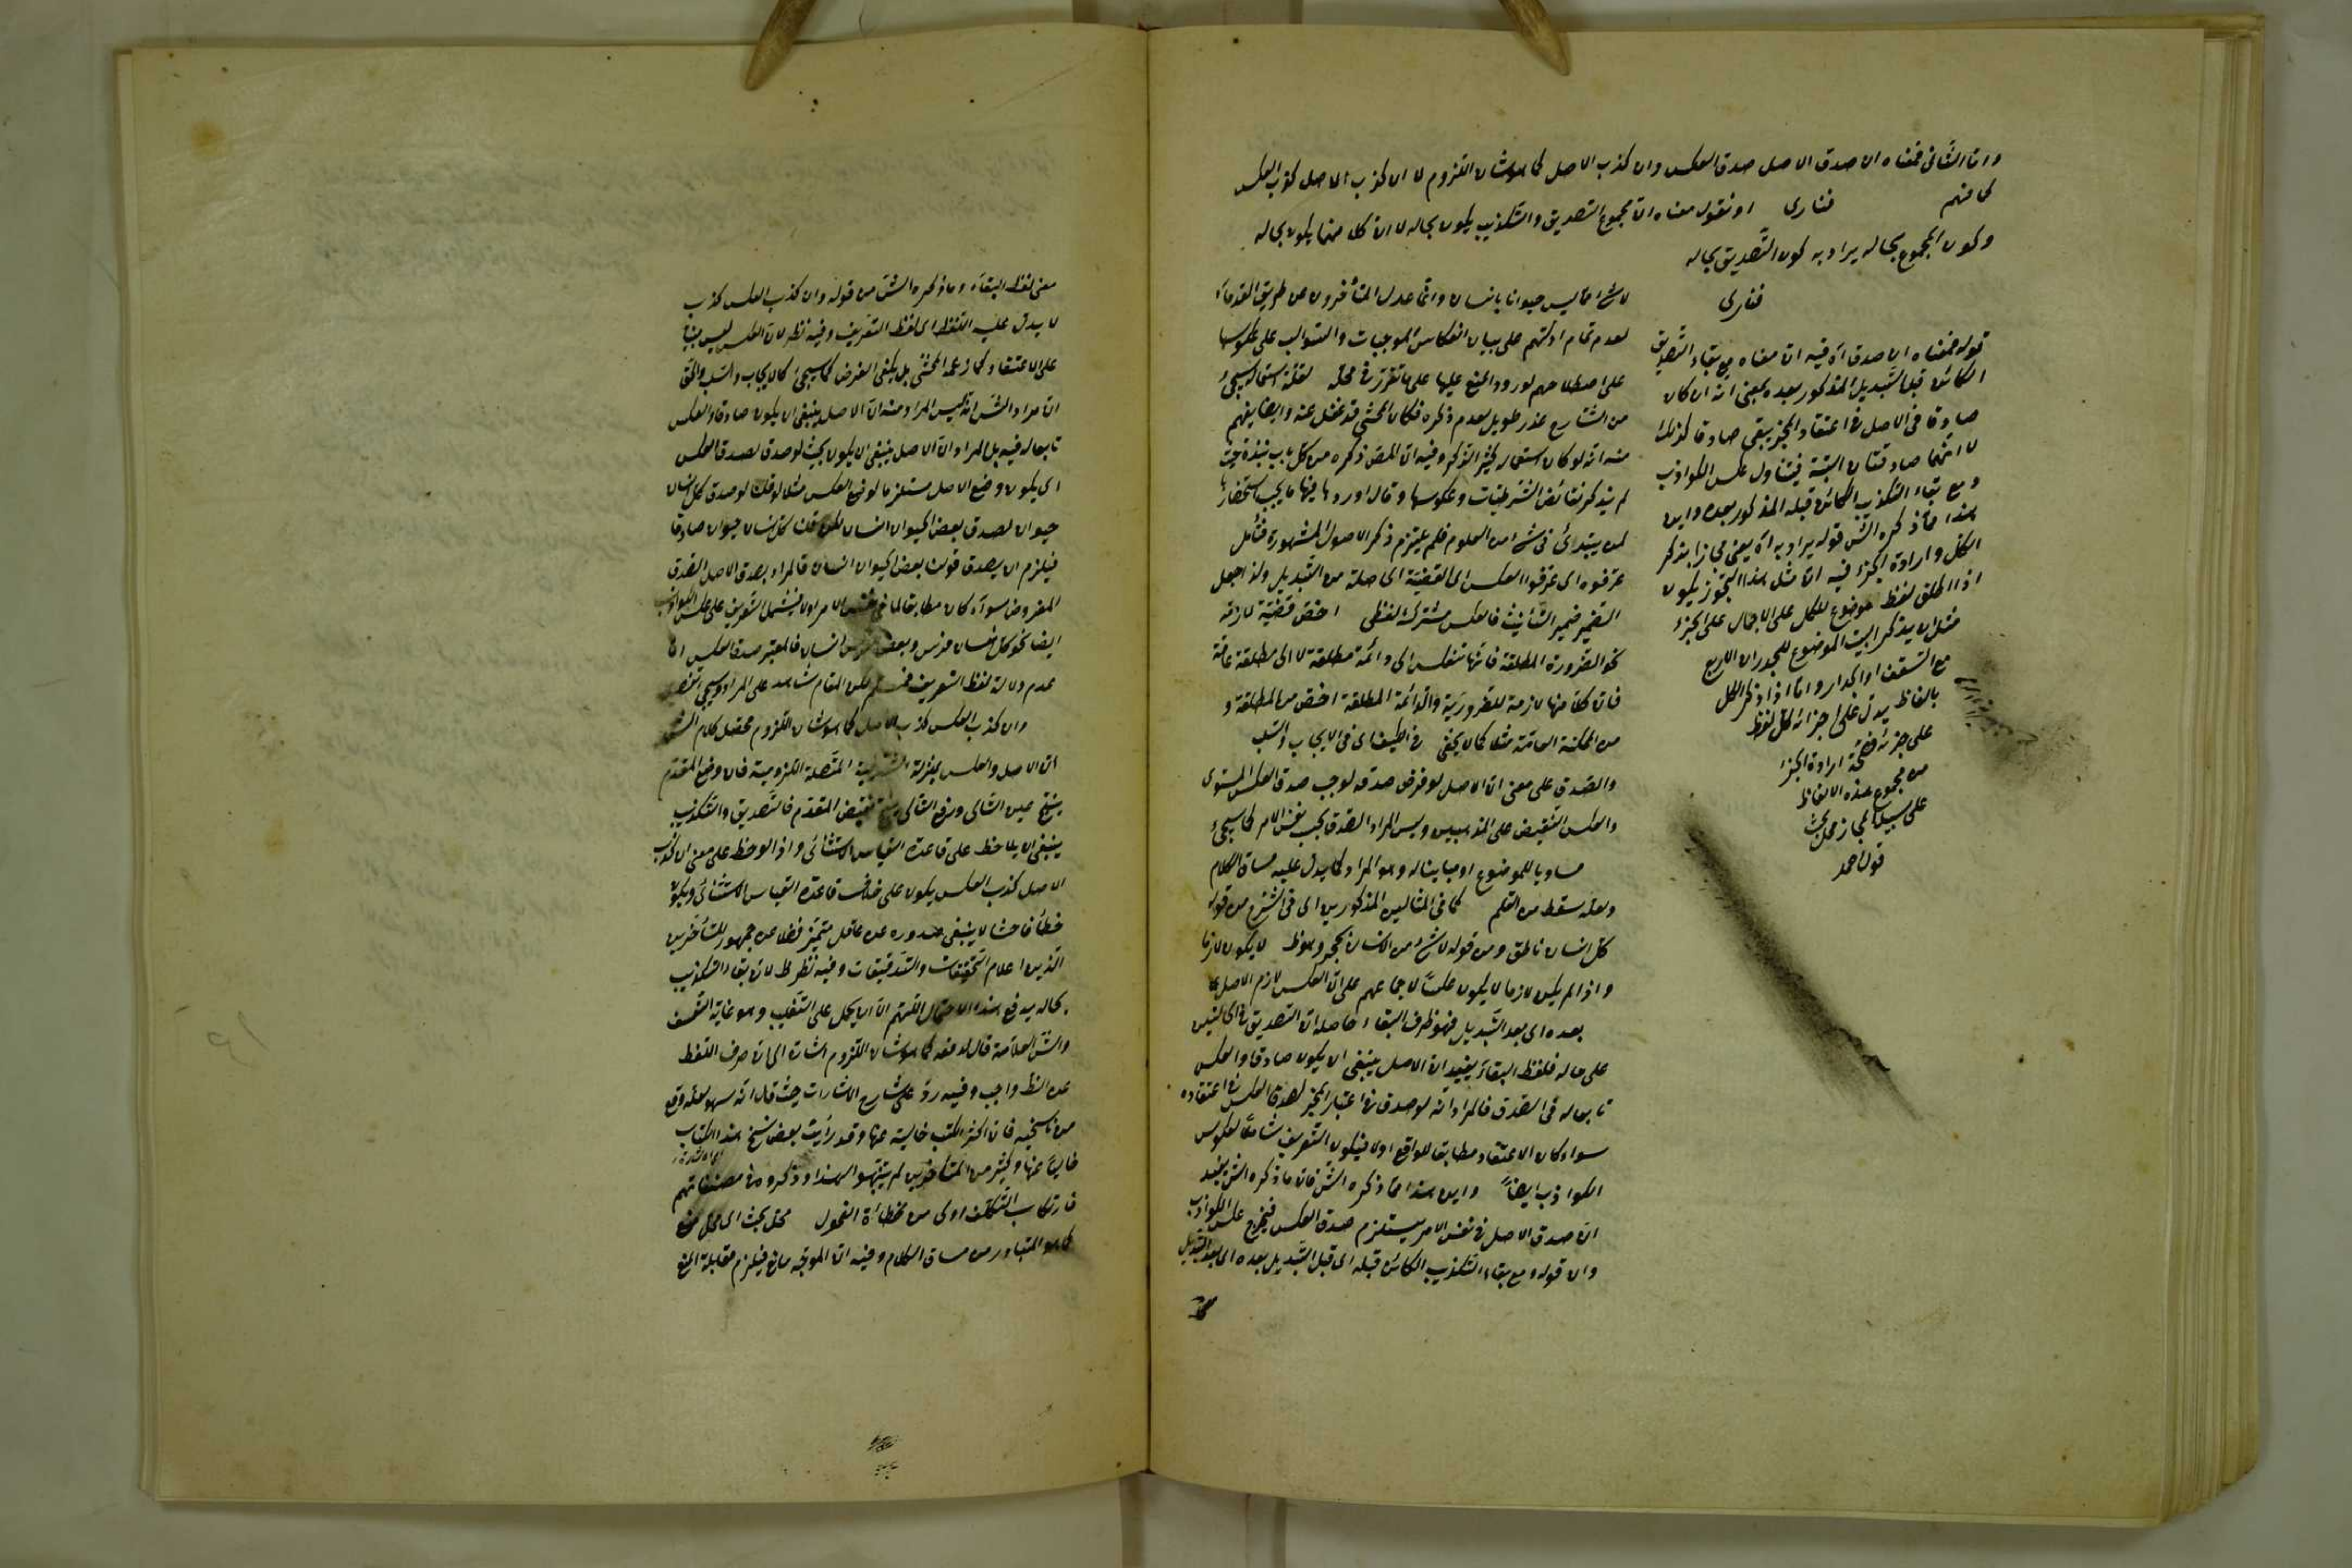 واما الثانى فمعناه ان صدق الاصل صدق العكس وان كذب الاصل كما هو شان اللزوم لا ان كذب الاصل كذب العكس
كما فهم فنارى او نقول معناه ان مجموع التصديق والتكذيب يكون بحاله لا ان كلا منهما يكون بحاله
وكون المجموع بحاله يراد به كون التصديق بحاله
فنارى
قوله فمعناه ان صدق اه فيه ان معناه مع بقاء التصديق
الكائن قبل التبديل المذكور بعده بمعنى انه ان كان
صادقا فى الاصل فى اعتقاد المخبر يبقى صادقا كذلك
لا انهما صادقتان البتة فيتناول عكس الكواذب
ومع بقاء التكذيب الكائن قبله المذكور بعده واين
هذا مما ذكره الش قوله يراد به اه يعنى مجازا بذكر
الكل وارادة الجزء فيه ان مثل هذا التجوز يكون
اذا اطلق لفظ موضوع للكل على الاجمال على الجزء
مثل ان يذكر البيت الموضوع للجدران الاربع
مع السقف او الجدار واما اذا ذكر الكل
بالفاظ يدل على اجزائه كل لفظ
على جزئه فصحة ارادة الجزء
من مجموع هذه الالفاظ
على سبيل المجاز محل بحث
قول احمد
لا شئ مما ليس حيوانا بانسان وانما عدل المتأخرون عن طريق القدماء
لعدم تمام ادلتهم على بيان انعكاس الموجبات والسوالب على عكوسها
على اصطلاحهم لورود المنع عليها على ما تقرر فى محله لقلة استعماله سيجئ
من الشارح عذر طويل لعدم ذكره فكان المحشى قد غفل عنه وايضا يفهم
منه انه لو كان استعماله كثير الذكر وفيه ان المص ذكره من كل باب نبذة حيث
لم يذكر نقائض الشرطيات وعكوسها وقال اوردها فيها ما يجب استحضارها
لمن يبتدئ فى شئ من العلوم فلم يلتزم ذكر الاصول المشهورة فتأمل
عرفوه اى عرفوا العكس اى القضية الحاصلة من التبديل ولذا جعل
الضمير ضمير التأنيث فالعكس مشترك لفظى اخص قضية لازمة
نحو الضرورة المطلقة فانها تنعكس الى دائمة مطلقة لا الى مطلقة عامة
فان كلا منها لازمة للضرورية والدائمة المطلقة اخص من المطلقة و
من الممكنة العامة مثلا كما لا يخفى فى الطيف اى فى الايجاب والسلب
والصدق على معنى ان الاصل لو فرض صدقه لوجب صدق العكس المستوى
والعكس النقيض على المذهبين وليس المراد الصدق بحسب نفس الامر كما سيجئ
مساويا للموضوع او مباينا له وهو المراد كما يدل عليه مساق الكلام
ولعله سقط من القلم كما فى المثالين المذكورين اى فى الشرح من قوله
كل انسان ناطق ومن قوله لا شئ من الانسان بحجر وهو ظ لا يكون لازما
واذا لم يكن لازما لا يكون عكسا لاجماعهم على ان العكس لازم الاصل
بعده اى بعد التبديل فهو ظرف البقاء حاصله ان التصديق فى الحالتين
على حاله فلفظ البقاء يفيد ان الاصل ينبغى ان يكون صادقا والعكس
تابعا له فى الصدق فالمراد انه لو صدق فى اعتبار المخبر لصدق العكس فى اعتقاده
سواء كان الاعتقاد مطابقا للواقع او لا فيكون التعريف شاملا لعكوس
الكواذب ايضا واين هذا مما ذكره الش فان ما ذكره الش يفيد
ان صدق الاصل فى نفس الامر يستلزم صدق العكس فيخرج عكس الكواذب
وان قوله ومع بقاء التكذيب الكائن قبله اى قبل التبديل بعده اى بعد التبديل
معنى لفظ البقاء وما ذكره الش من قوله وان كذب العكس كذب
لا يدل عليه اللفظ اى لفظ التعريف وفيه نظر لان العكس ليس
على الاعتقاد كما زعمه المحشى بل يكفى الفرض كما سيجئ كالايجاب والسلب والحق
ان مراد الش انه ليس المراد منه ان الاصل ينبغى ان يكون صادقا والعكس
تابعا له فيه بل المراد ان الاصل ينبغى ان يكون بحيث لو صدق لصدق العكس
اى يكون وضع الاصل مستلزما لوضع العكس مثلا لو قلت لو صدق كل انسان
حيوان لصدق بعض الحيوان انسان لكن قلت كل انسان حيوان صادقا
فيلزم ان يصدق قولنا بعض الحيوان انسان فالمراد بصدق الاصل الصدق
المفروض سواء كان مطابقا لما فى نفس الامر او لا فيشمل التعريف على عكس الكواذب
ايضا نحو كل انسان فرس وبعض الفرس انسان فالمعتبر صدق العكس اما
عدم دلالة لفظ التعريف فمسلم لكن المقام شاهد على المراد وسيجئ
وان كذب العكس كذب الاصل كما هو شان اللزوم محصل كلام الش
ان الاصل والعكس بمنزلة الشرطية المتصلة اللزومية فان وضع المقدم
ينتج عين التالى ورفع التالى ينتج نقيض المقدم فالتصديق والتكذيب
ينبغى ان يلاحظ على قاعدة القياس الاستثنائى واذا لوحظ على معنى ان كذب
الاصل كذب العكس يكون على خلاف قاعدة القياس الاستثنائى ويكون
خطأ فاحشا لا ينبغى صدوره عن عاقل متميز فضلا عن جمهور المتأخرين
الذين اعلام التحقيقات والتدقيقات وفيه نظر ظ لان بقاء التكذيب
بحاله يدفع هذا الاحتمال اللهم الا ان يحمل على التغليب وهو غاية التعسف
والش العلامة قال لدفعه كما هو شان اللزوم اشارة الى ان صرف اللفظ
عن الظ واجب وفيه رد على شارح الاشارات حيث قال انه سهو لعله وقع
من ناسخيه فان اكثر الكتب خالية عنها وقد رأيت بعض نسخ هذا الكتاب
خاليا عنها وكثير من المتأخرين لم يتنبهوا لهذا وذكروه فى مصنفاتهم
فارتكاب التكلف اولى من تخطأة الفحول محل بحث اى محل منع
كما هو المتبادر من مساق الكلام وفيه ان الموجه مانع فيلزم مقابلة المنع